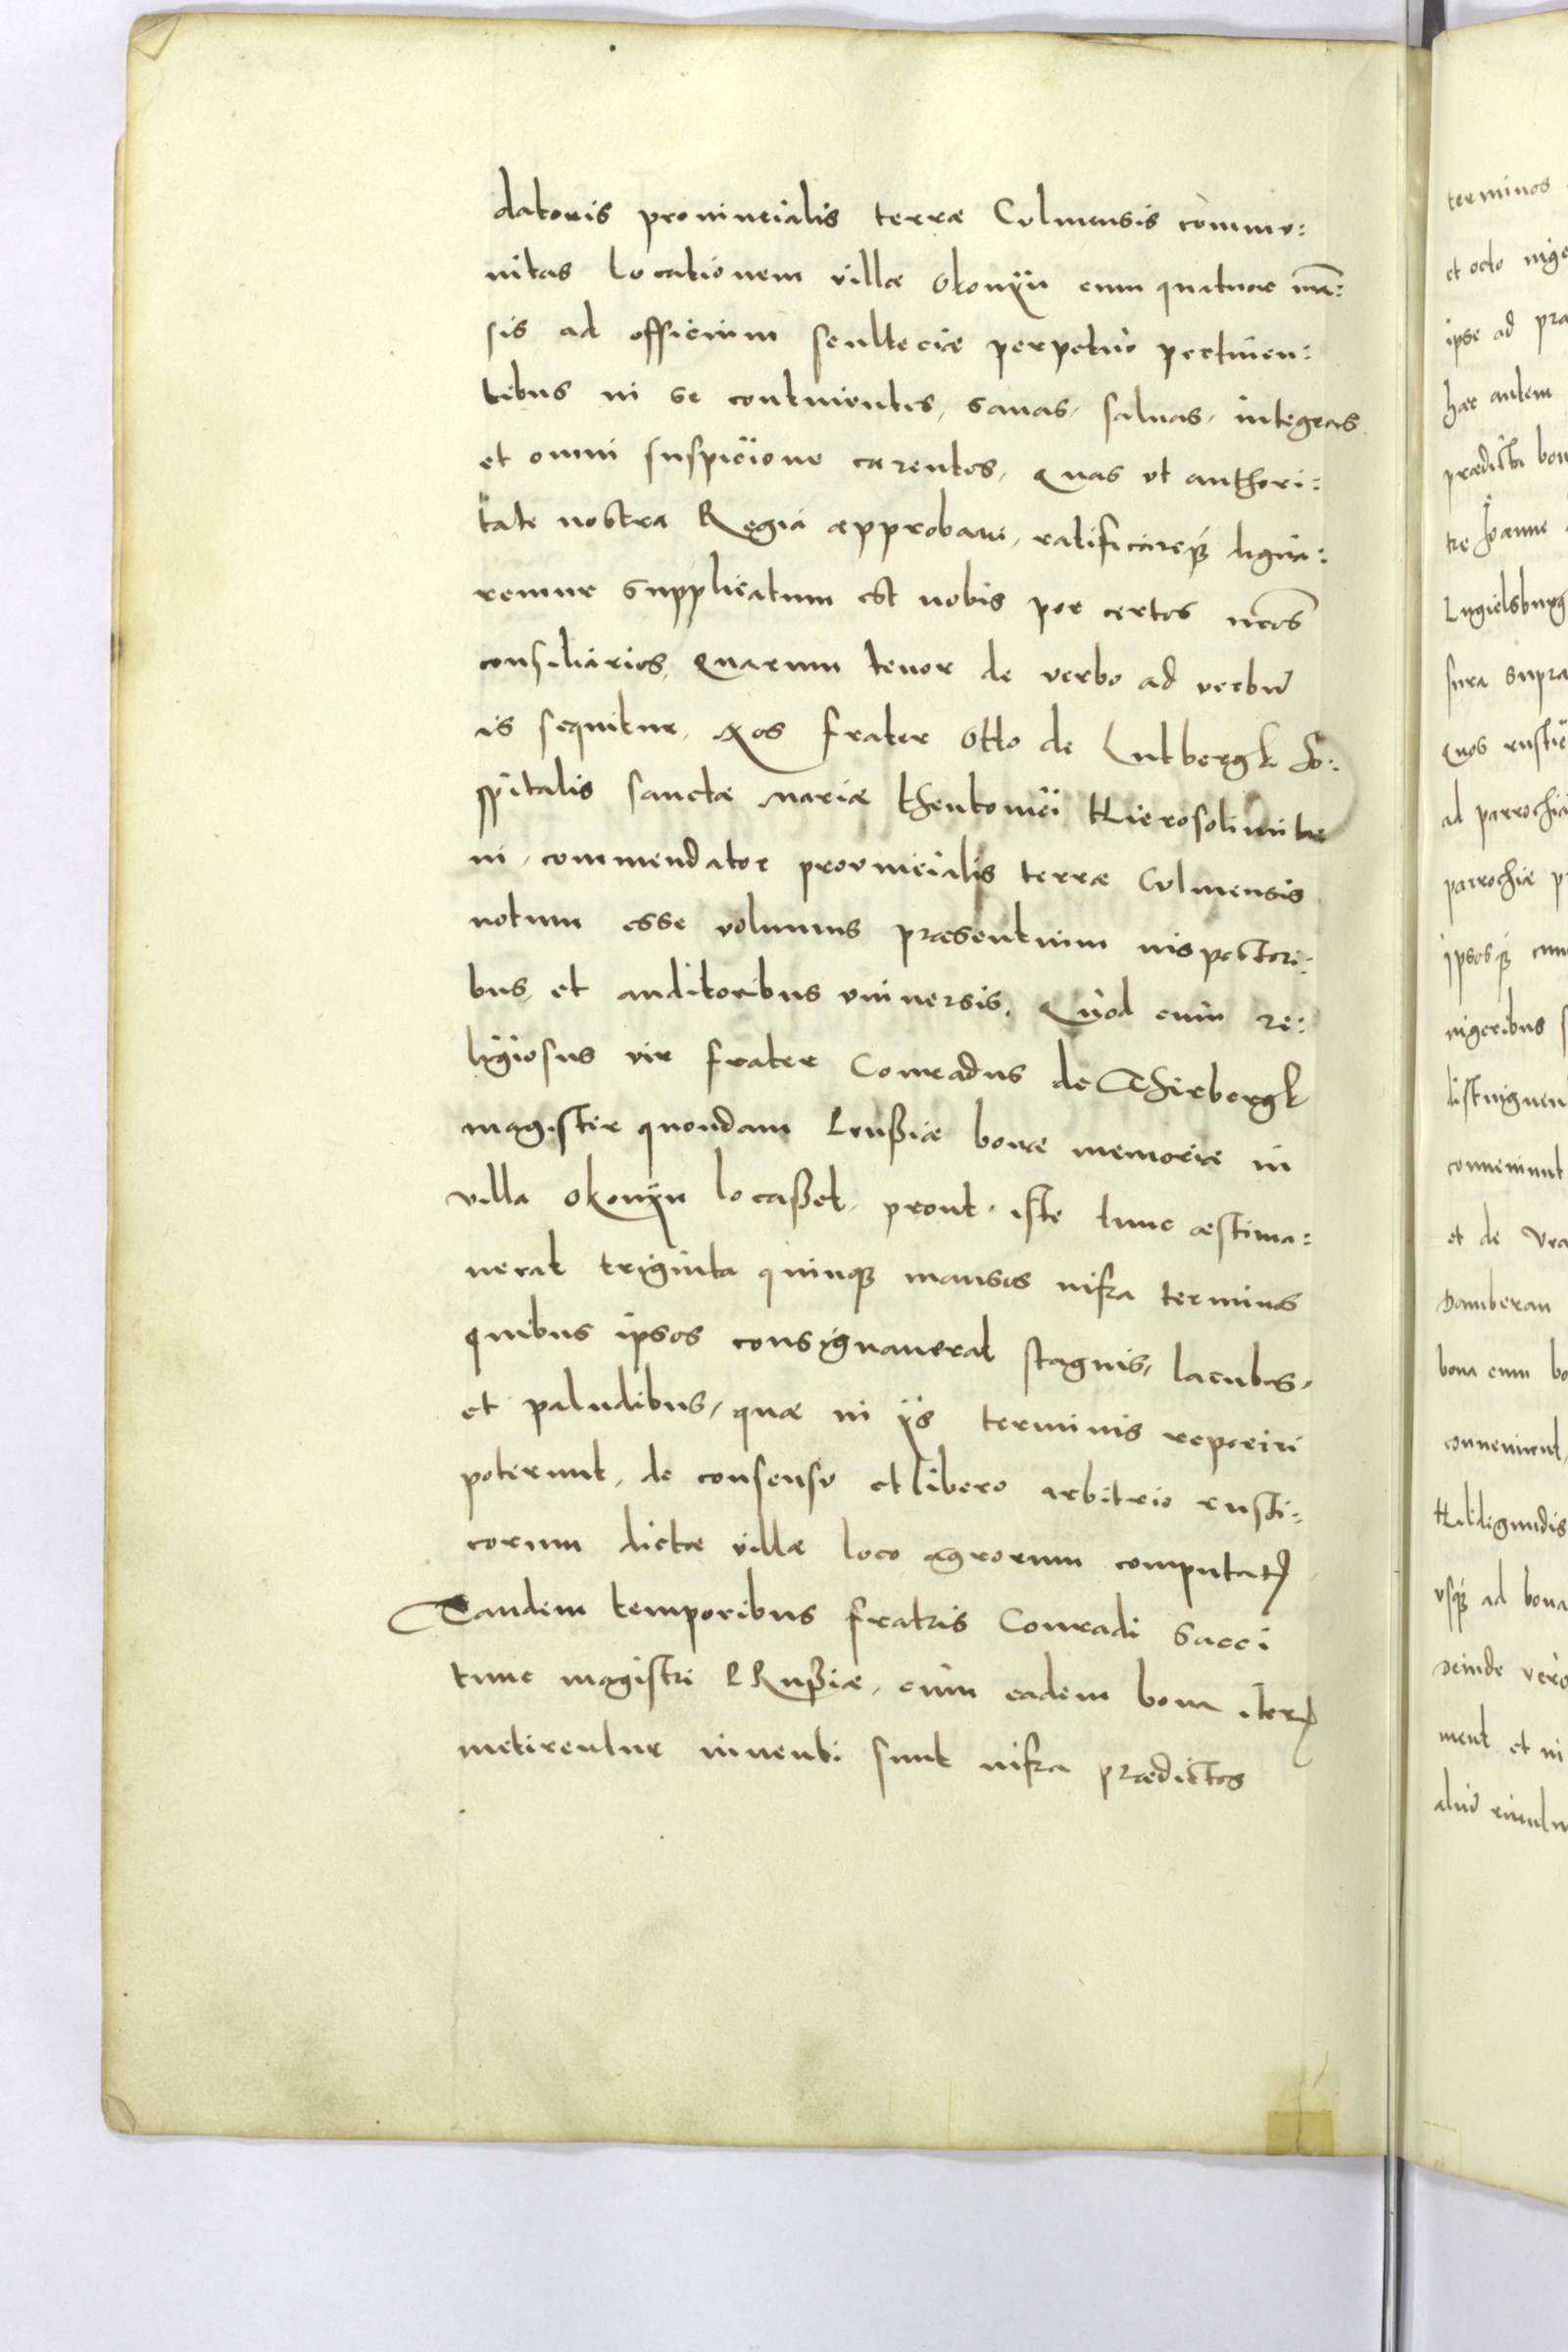 datoris prouincialis terræ Culmensis commu:
nitas locationem villæ Okonÿn cum quatuor man:
sis ad officium sculteciæ perpetuò pertinen:
tibus in se continentes, sanas, saluas, integras
et omni suspicione carentes, Quas vt authori:
tate nostra Regia approbare, ratificareq3 digna:
remur supplicatum est nobis per certos nros
consiliarios, Quarum tenor de verbo ad verbũ
is sequitur, Nos frater Otto de Lutbergk Ho:
spitalis sanctæ Mariæ theutonici Hierosolimita
ni, commendator prouincialis terræ Culmensis
notum esse volumus præsentium inspectori:
bus, et auditoribus vniuersis, Quod cum re:
ligiosus vir frater Conradus de Thirbergk
magister quondam Prußiæ bonæ memoriæ in
villa Okonÿn locaßet, prout iste tunc æstima:
uerat triginta quinq3 mansos infra terminos
quibus ipsos consignauerat stagnis, lacubus,
et paludibus, quæ in ijs terminis reperiri
poterunt, de consensu et libero arbitrio rusti:
corum dictæ villæ loco agrorum computat
Tandem temporibus fratris Conradi Sacci
tunc magistri PRußiæ, cùm eadem bona iter
metirentur inuenti sunt infra prædictos
terminos
et octo
ipse ad
hæc autem
prædicti
tre Joanne
Lngielsburg
sura supra
Quos
ad
parrochiæ
ipsosq3
conueniunt
et de
Damberau
bona cum
conuenient,
Hildigundis
vsq3 ad bona
deinde verò
et in